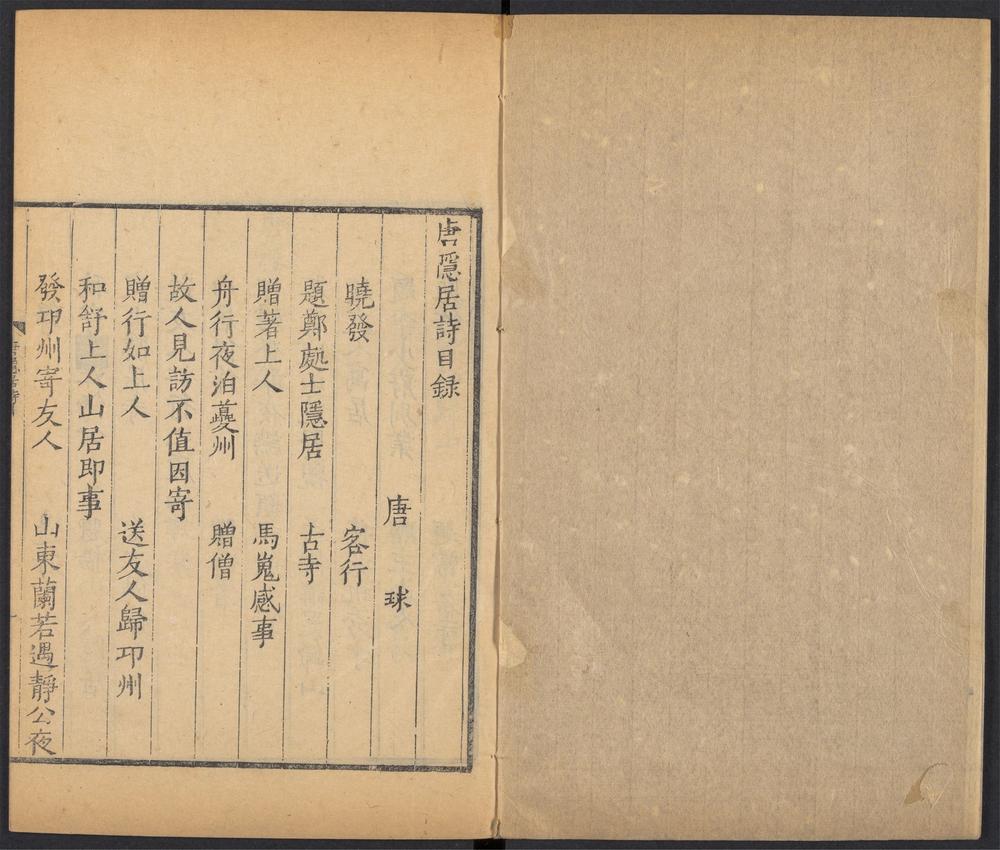 唐隱居詩目録
唐　球
曉發　客行
題鄭處士隱居　古寺
贈著上人　馬嵬感事
舟行夜泊夔州　贈僧
故人見訪不值因寄
贈行如上人　送友人歸卭州
和舒上人山居即事
發卭州寄友人　山東蘭若遇靜公夜